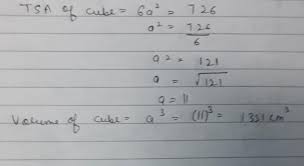 TSA of cube = 6a² = 726
a² = 726/6
a² = 121
a = √121
a = 11
Volume of cube = a³ = (11)³ = 1331 cm³